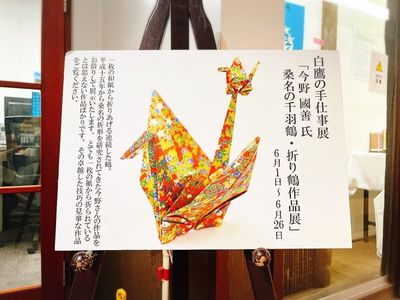 白鷹の手仕事展
「今野 國善 氏
桑名の千羽鶴・折り鶴作品展」
6月1日～6月26日
一枚の和紙から折りあげる連続した鶴。
平成十五年から桑名の折形を研究されてきた今野さんの作品を
お借りして展示いたします。とても一枚の紙から折られている
とは思えない作品ばかりです。その卓越した技巧の見事な作品
をご覧ください。